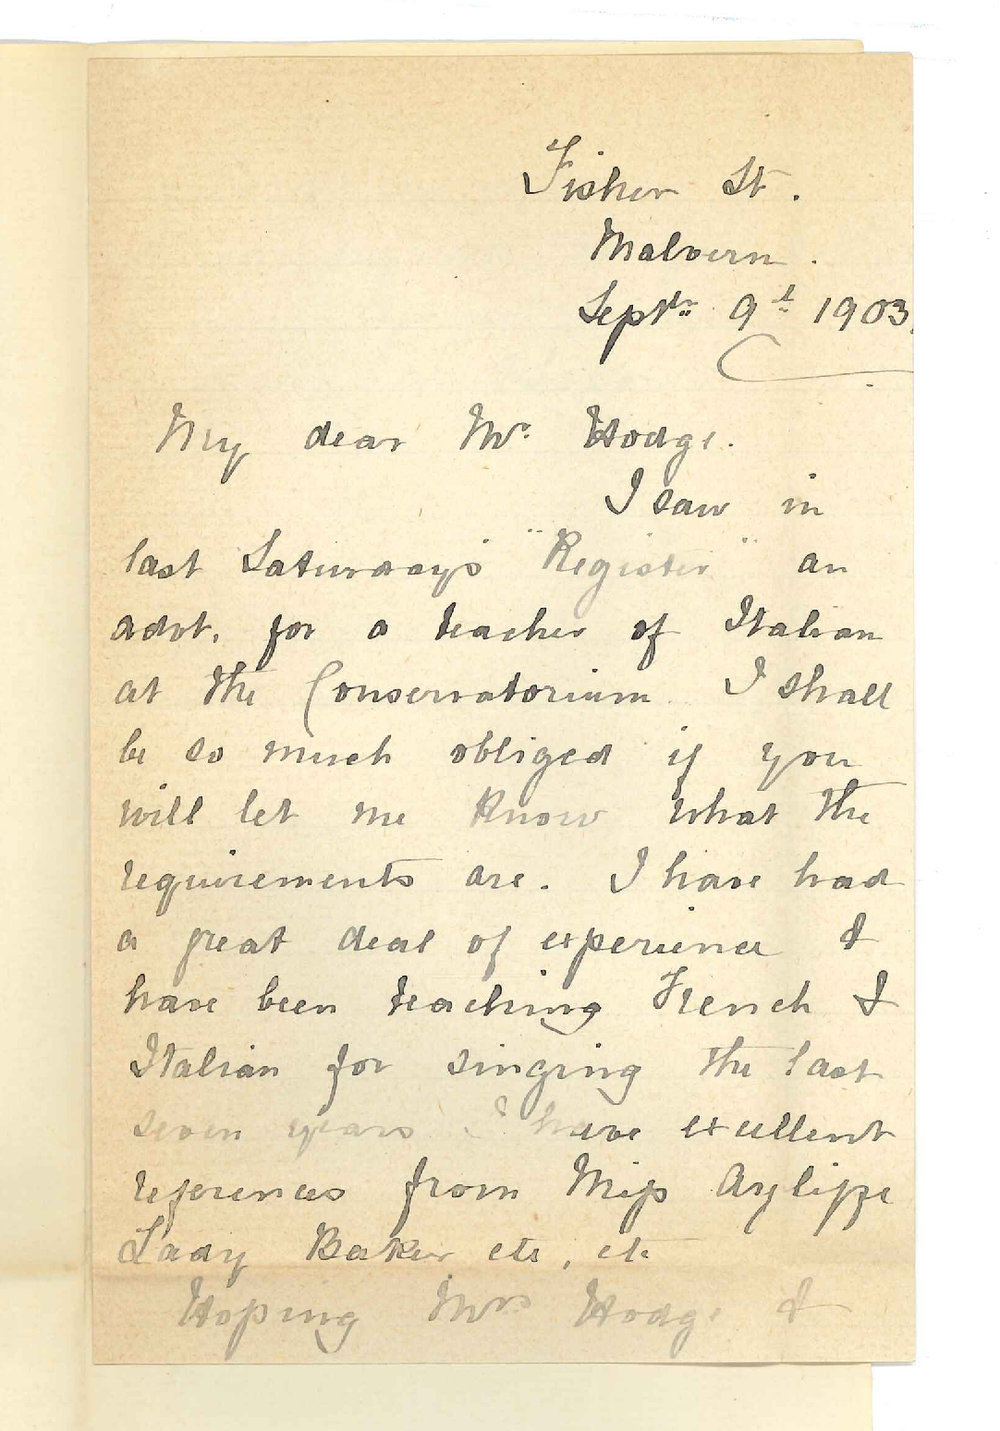 Fisher St.
Malvern.
Septr. 9t 1903.
My dear Mr. Hodge.
I saw in
last Saturday's "Register" an
advt. for a teacher of Italian
at the Conservatorium. I shall
be so much obliged if you
will let me know what the
requirements are. I have had
a great deal of experience &
have been teaching French &
Italian for singing the last
seven years. I have excellent
references from Miss
Lady Baker etc, etc
Hoping Mrs Hodge &